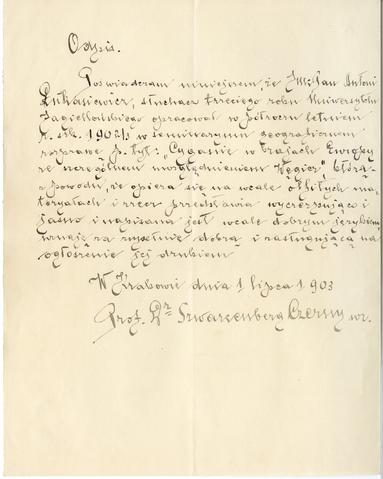 Odpis.
Poświadczam niniejszem, że JMP. Jan Antoni
Łukasiewicz, słuchacz trzeciego roku Uniwersytetu
Jagiellońskiego opracował w półroczu letniem
r. szk. 1902/3 w seminaryum geograficznem
rozprawę p. tyt: „Cyganie w krajach Europy
ze szczególnem uwzględnieniem Węgier", którą
z powodu, że opiera się na wcale obfitych ma-
teryałach i rzecz przedstawia wyczerpująco i
jasno i napisana jest wcale dobrym językiem,
uznaję za zupełnie dobrą i zasługującą na
ogłoszenie jej drukiem
W Krakowie dnia 1 lipca 1903
Prof. Dr Szwarcenberg Czerny wr.